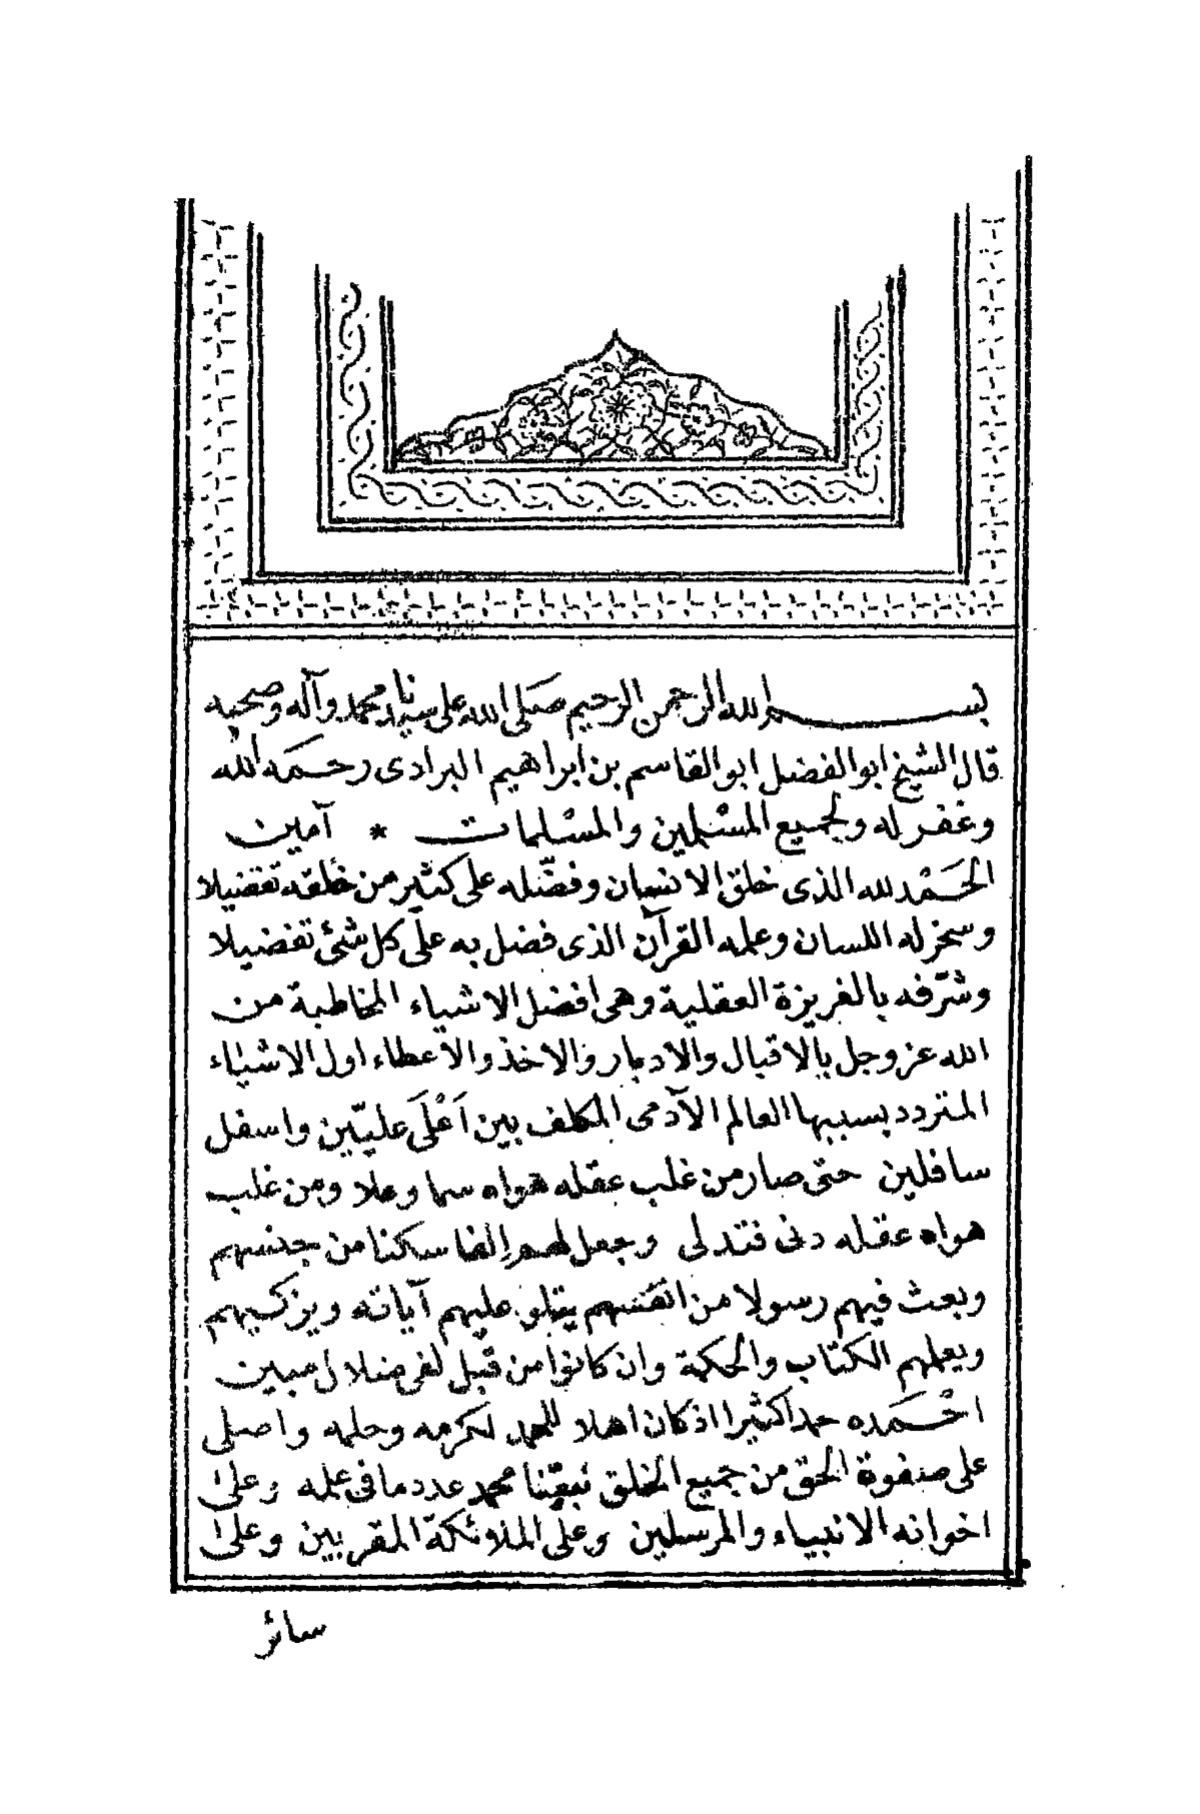 بسم الله الرحمن الرحيم صلى الله على سيدنا محمد وآله وصحبه
قال الشيخ ابو الفضل ابو القاسم بن ابراهيم البرادى رحمه الله
وغفر له ولجميع المسْلمين والمسْلمات * آمين
الحَمْد لله الذى خلق الانسان وفضّله على كثير من خلقه تفضيلا
وسخر له اللسان وعلمه القرآن الذى فضل به على كل شئ تفضيلا
وشرّفه بالغريزة العقلية وهى افضل الاشياء المخاطبة من
الله عز وجل بالاقبال والادبار والاخذ والاعطاء اول الاشياء
المتردد بسببها العالم الآدمى المكلف بين اَعْلَى عليّين واسفل
سافلين حتى صار من غلب عقله هواه سما وعلا ومن غلب
هواه عقله دنى فتدلى وجعل لهم ارضا سكنا من جنسهم
وبعث فيهم رسولا من انفسهم يتلو عليهم آياته ويزكيهم
ويعلمهم الكتاب والحكمة وان كانوا من قبل لفى ضلال مبين
احْمده حمدا كثيرا اذ كان اهلا للحمد لكرمه وحلمه واصلى
على صفوة الحق من جميع الخلق نبيّنا محمد عدد ما فى علمه وعلى
اخوانه الانبياء والمرسلين وعلى الملائكة المقربين وعلى
سائر